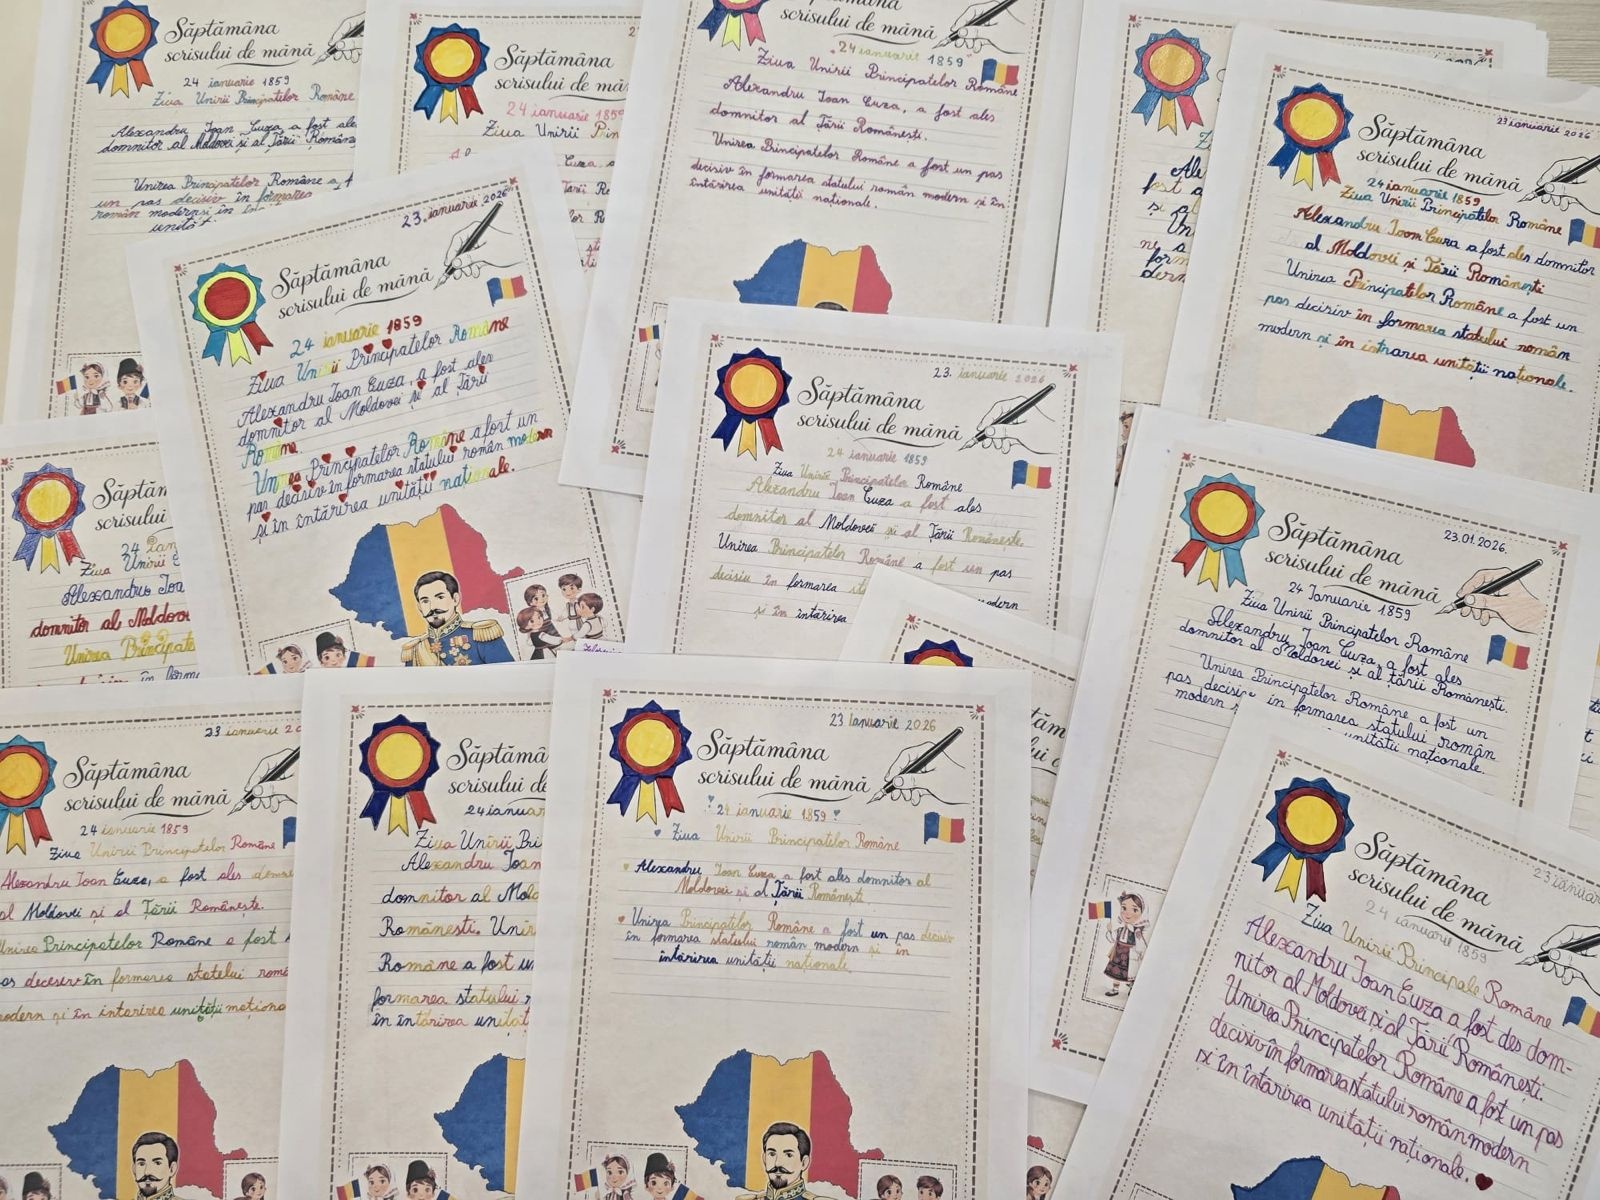 Săptămâna
scrisului de mână
24 ianuarie 1859
Ziua Unirii Principatelor Române
Alexandru Ioan Cuza, a fost ales
domnitor al Moldovei și al Țării Române
Unirea Principatelor Române a f
un pas decisiv în formarea
român modern și în
unităt
Săptămâna
scrisului de mân
24 ianuarie 1859
Ziua Unirii Prin
Cuza, a
scrisului de mână
"24 ianuarie 1859"
Ziua Unirii Principatelor Române
Alexandru Ioan Cuza, a fost ales
domnitor al Țării Românești.
Unirea Principatelor Române a fost un pas
decisiv în formarea statului român modern și în
întărirea unității naționale.
Ale
fost a
și al
Un
ne a
form
dern
23 ianuarie 2026
Săptămâna
scrisului de mână
24 ianuarie 1859
Ziua Unirii Principatelor Române
Alexandru Ioan Cuza a fost ales domnitor
al Moldovei și Țării Românești
Unirea Principatelor Române a fost un
pas decisiv în formarea statului român
modern și în intrarea unității naționale.
23. ianuarie 2026
Săptămâna
scrisului de mână
24 ianuarie 1859
Ziua Unirii Principatelor Române
Alexandru Ioan Cuza, a fost ales
domnitor al Moldovei și al Țării
Române.
Unirea Principatelor Române a fost un
pas decisiv în formarea statului român modern
și în întărirea unității naționale.
23. ianuarie 2026
Săptămâna
scrisului de mână
24 ianuarie 1859
Ziua Unirii Principatelor Române
Alexandru Ioan Cuza a fost ales
domnitor al Moldovei și al Țării Românește.
Unirea Principatelor Române a fost un pas
decisiv în formarea
modern
și în întărirea
Săptăm
scrisului
24 ian
Ziua Unirii
Alexandru Ioa
domnitor al Moldov
Unirea Principate
în form
23.01.2026.
Săptămâna
scrisului de mână
24 Ianuarie 1859
Ziua Unirii Principatelor Române
Alexandru Ioan Cuza, a fost ales
domnitor al Moldovei și al țării Românești.
Unirea Principatelor Române a fost un
pas decisiv în formarea statului român
modern
unității naționale.
23 ianuarie 20
Săptămâna
scrisului de mână
24 ianuarie 1859
Ziua Unirii Principatelor Române
Alexandru Ioan Cuza, a fost ales
al Moldovei și al Țării Românește.
Unirea Principatelor Române a fost
decesiv în formarea statului
modern și în intarirea unității naționa
Săptămân
scrisului de
24 ianuar
Ziua Unirii Pri
Alexandru Ioan
domnitor al Mold
Românești. Unir
Române a fost u
formarea statului
în întărirea unităt
23 Ianuarie 2026
Săptămâna
scrisului de mână
24 ianuarie 1859
Ziua Unirii Principatelor Române
Alexandru Ioan Cuza a fost ales domnitor al
Moldovei și al Țării Românești.
Unirea Principatelor Române a fost un pas decisiv
în formarea statului român modern și în
întărirea unității naționale.
23 ianuar
Săptămâna
scrisului de mână
24 ianuarie 1859
Ziua Unirii Principale Române
Alexandru Ioan Cuza a fost des dom-
nitor al Moldovei și al Țării Românești.
Unirea Principatelor Române a fost un pas
decisiv în formarea statului român modern
și în întărirea unității naționale.